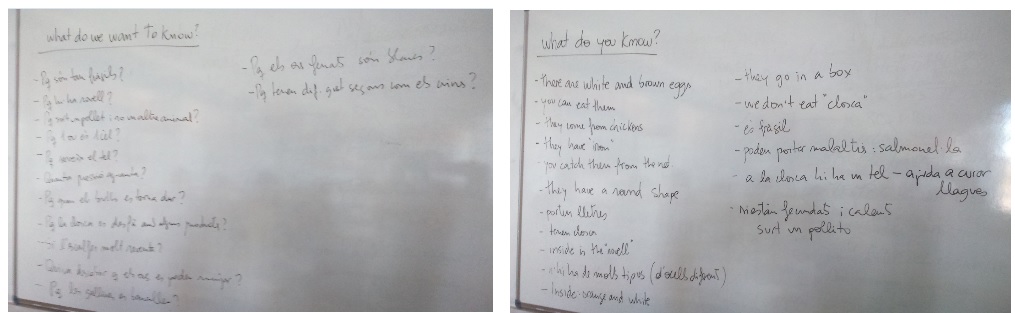 what do we want to know?
- Pq són tan fràgils?
- Pq hi ha rovell?
- Pq surt un pollet i no un altre animal?
- Pq
- Pq serveix el tel?
- Quanta pressió aguanta?
- Pq quan els bulles es torna dur?
- Pq la closca es desfà amb alguns productes?
- si l'escalfes molt
- es poden menjar?
- Pq les gallines
- Pq els ous són blancs?
- Pq tenen dif. gust segons com els cuins?
what do you know?
- there are white and brown eggs
- you can eat them
- they come from chickens
- they have
- you catch them from the
- they have a round shape
- porten lletres
- tenen closca
- inside is the "rovell"
- n'hi ha de molts tipus (d'ocells diferent)
- Inside-orange and white
- they go in a box
- we don't eat "closca"
- és fràgil
- poden portar malalties: salmonel·la
- a la closca hi ha un tel - ajuda a curar
llagues
- si estàn fecundats i calent
surt un pollito